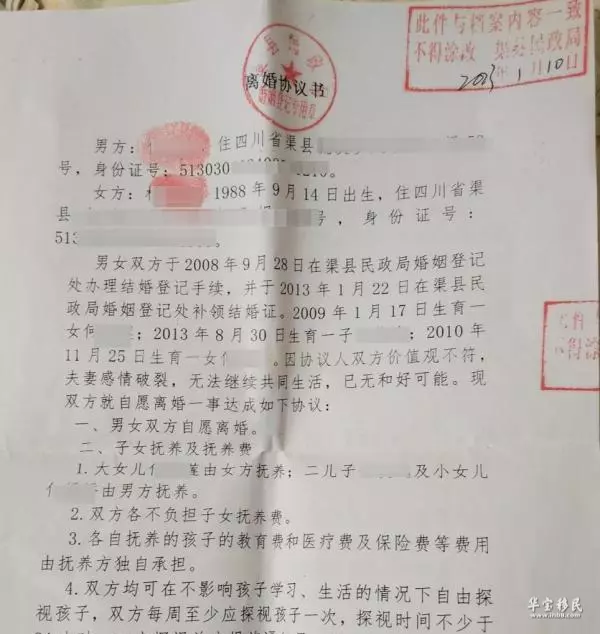 此件与档案内容一致
不得涂改 渠县民政局
2023年1月10日
离婚协议书
婚姻登记专用章
男方: 住四川省渠县
号,身份证号:513030
女方: 1988年9月14日出生,住四川省渠
县 号,身份证号:
513
男女双方于2008年9月28日在渠县民政局婚姻登记
处办理结婚登记手续,并于2013年1月22日在渠县民
政局婚姻登记处补领结婚证。2009年1月17日生育一
女 ;2013年8月30日生育一子 ;2010年
11月25日生育一女 。因协议人双方价值观不符,
夫妻感情破裂,无法继续共同生活,已无和好可能。现
双方就自愿离婚一事达成如下协议:
一、男女双方自愿离婚。
二、子女抚养及抚养费
1.大女儿 由女方抚养;二儿子 及小女儿
由男方抚养。
2.双方各不负担子女抚养费。
3.各自抚养的孩子的教育费和医疗费及保险费等费用
由抚养方独自承担。
4.双方均可在不影响孩子学习、生活的情况下自由探
视孩子,双方每周至少应探视孩子一次,探视时间不少于
华宝移民